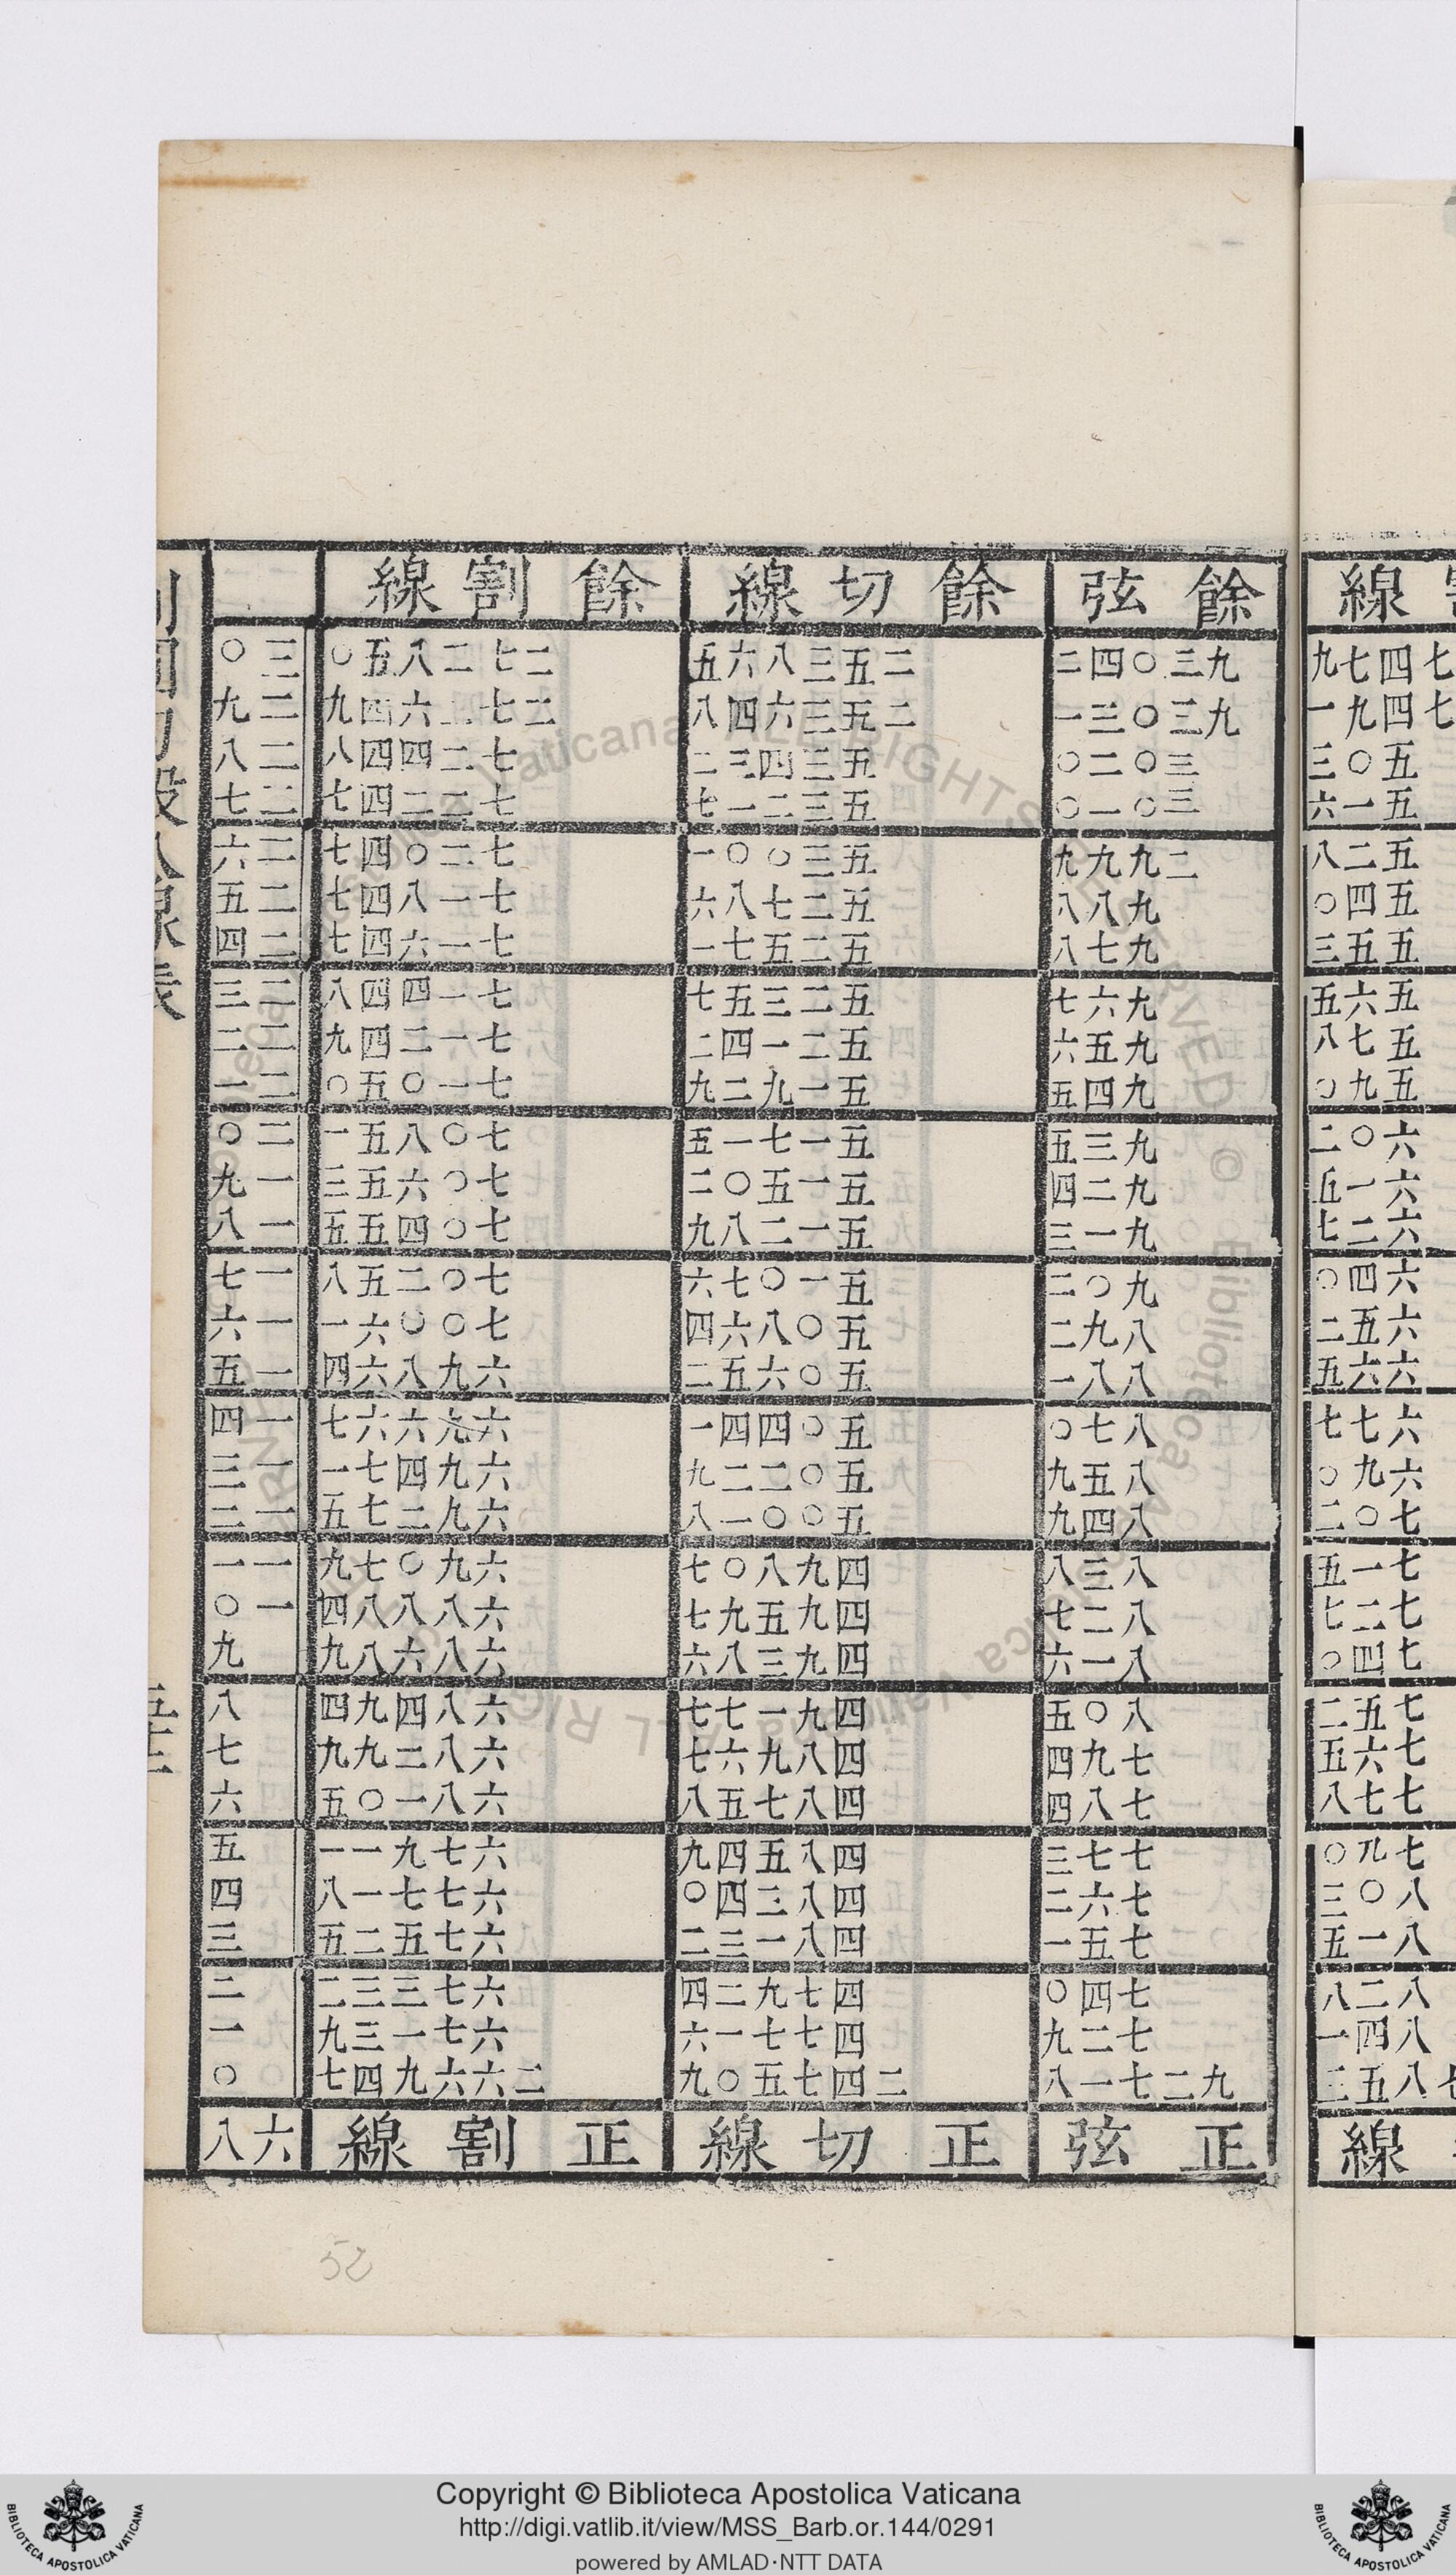 線 餘弦 餘切線 餘割線
七四七九 九三〇四二 二五三八六五 二七二八五〇 三〇
七四九一 九三〇三一 二五三六四八 二七二六四九 二九
五〇三 三〇二〇 五三四三二 七二四四八 二八
五一六 三〇一〇 五三二一七 七二二四七 二七
五二八 二九九九 五三〇〇一 七二〇四七 二六
五四〇 九八八 五二七八六 七一八四七 二五
五五三 九七八 五二五七一 七一六四七 二四
五六五 九六七 五二三五七 七一四四八 二三
五七八 九五六 五二一四二 七一二四九 二二
五九〇 九四五 五一九二九 七一〇五〇 二一
六〇二 九三五 五一七一五 七〇八五一 二〇
六一五 九二四 五一五〇二 七〇六五三 一九
六二七 九一三 五一二八九 七〇四五五 一八
六四〇 九〇二 五一〇七六 七〇二五八 一七
六五二 八九二 五〇八六四 七〇〇六一 一六
六六五 八八一 五〇六五二 六九八六四 一五
六七七 八七〇 五〇四四一 六九六六七 一四
六九〇 八五九 五〇二二九 六九四七一 一三
七〇二 八四九 五〇〇一八 六九二七五 一二
七一五 八三八 四九八〇七 六九〇七九 一一
七二七 八二七 四九五九七 六八八八四 一〇
七四〇 八一六 四九三八六 六八六八九 九
七五二 八〇五 四九一七七 六八四九四 八
七六五 七九四 四八九六七 六八二九九 七
七七八 七八四 四八七五八 六八一〇五 六
七九〇 七七三 四八五四九 六七九一一 五
八〇三 七六二 四八三四〇 六七七一八 四
八一五 七五一 四八一三二 六七五二五 三
八二八 七四〇 四七九二四 六七三三二 二
八四一 七二九 四七七一六 六七一三九 一
七八五三 九二七一八 二四七五〇九 二六六九四七 〇
線 正弦 正切線 正割線 六八
52
Copyright © Biblioteca Apostolica Vaticana
http://digi.vatlib.it/view/MSS_Barb.or.144/0291
powered by AMLAD·NTT DATA
BIBLIOTECA APOSTOLICA VATICANA
BIBLIOTECA APOSTOLICA VATICANA